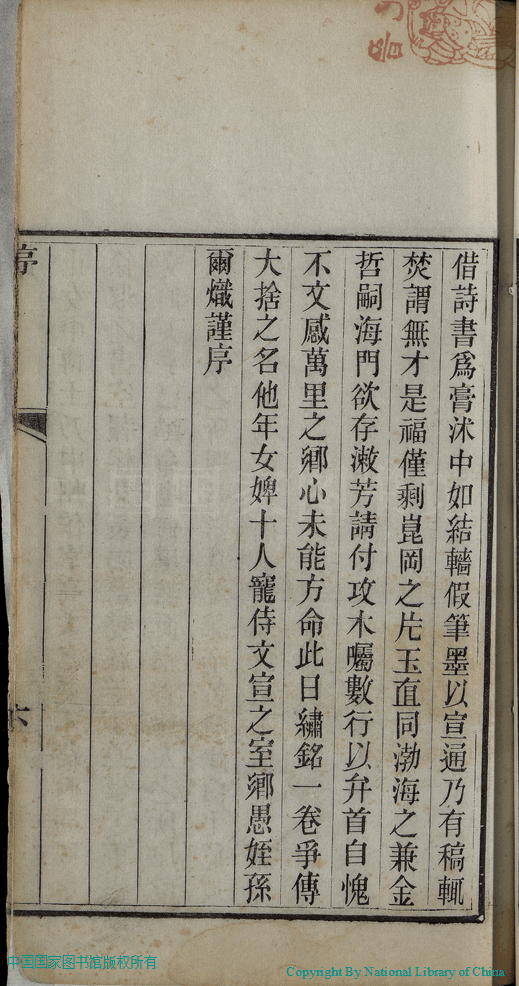 借詩書爲膏沐中如結轖假筆墨以宣通乃有稿輒
焚謂無才是福僅剩崑岡之片玉直同渤海之兼金
哲嗣海門欲存漱芳請付攻木囑數行以弁首自愧
不文感萬里之鄉心未能方命此日繡銘一卷爭傳
大捨之名他年女婢十人寵侍文宣之室鄉愚姪孫
爾熾謹序
序
六
中国国家图书馆版权所有
Copyright By National Library of China